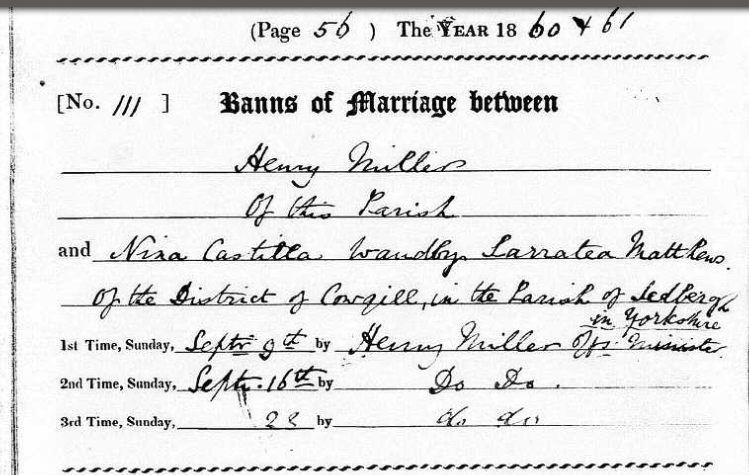 (Page 56 ) The YEAR 18 60 & 61
[No. 111 ] Banns of Marriage between
Henry Miller
Of this Parish
and Nina Castilla Wandby Larratea Matthews.
Of the District of Cowgill, in the Parish of Sedbergh
in Yorkshire
1st Time, Sunday, Septr 9th by Henry Miller Offg Minister
2nd Time, Sunday, Septr. 16th by Do Do.
3rd Time, Sunday, by do do